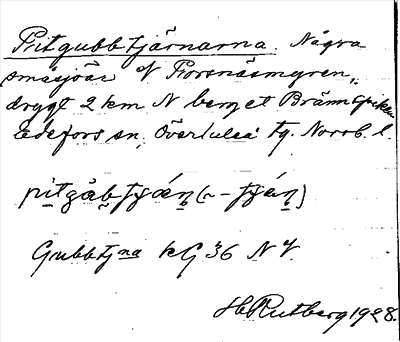 Pitgubbtjärnarna. Några
småsjöar V Forsnäsmyren,
drygt 2 km N berget Brännspiken
Edefors sn, Överluleå tg. Norrb. l.
Gubbtjna kG 36 NV
H Rutberg 1928.